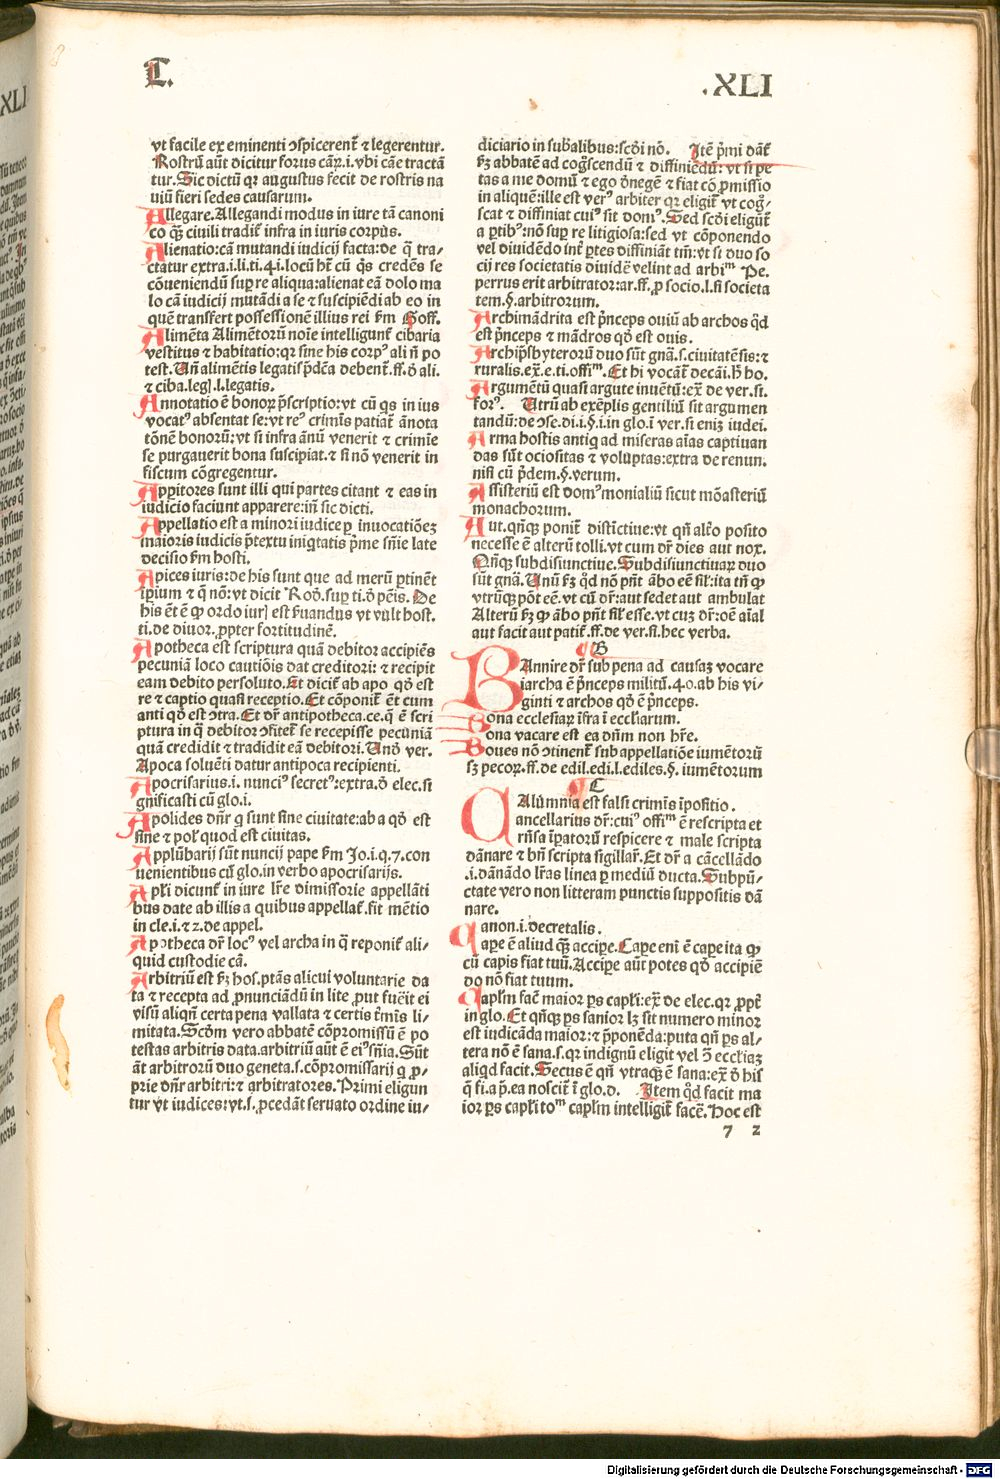 C.
.XLI
vt facile ex eminenti ↄspicerent̃ ⁊ legerentur.
Rostrũ aũt dicitur forus cãꝝ.i.vbi cãe tractã
tur.Sic dictũ qꝛ augustus fecit de rostris na
uiũ fieri sedes causarum.
Allegare.Allegandi modus in iure tã canoni
co q̃ꝫ ciuili tradit̃ infra in iuris corpus.
Alienatio:cãm mutandi iudicij facta:de q̃ tra⸗
ctatur extra.i.li.ti.4.i.locũ hꝫ cũ q̃s credẽs se
cõueniendũ suꝑ re aliqua:alienat eã dolo ma
lo cã iudicij mutãdi a se ⁊ suscipiẽdi ab eo in
quẽ transfert possessionẽ illius rei ẜm Goff.
Alimẽta Alimẽtorũ noĩe intelligunt̃ cibaria
vestitus ⁊ habitatio:qꝛ sine his corpꝰ ali ñ po
test.Uñ alimẽtis legatis p̃dẽa debent̃.ff.ð ali.
⁊ ciba.leg.l.legatis.
Annotatio ẽ bonoꝝ p̃scriptio:vt cũ q̃s in ius
vocatꝰ absentat se:vt reꝰ crimĩs patiat̃ ãnota
tõnẽ bonorũ:vt si infra ãnũ venerit ⁊ crimĩe
se purgauerit bona suscipiat.⁊ si nõ venerit in
fiscum cõgregentur.
Appitores sunt illi qui partes citant ⁊ eas in
iudicio faciunt apparere:iñ sic dicti.
Appellatio est a minori iudice ꝑ inuocatiõeꝫ
maioris iudicis p̃textu iniq̃tatis p̃me sñie late
decisio ẜm hosti.
Apices iuris:de his sunt que ad merũ ꝑtinẽt
ip̃ium ⁊ q̃ nõ:vt dicit Roð.suꝑ ti.ð pẽis.De
his ẽt ẽ ꝙ ordo iur̃ est ẜuandus vt vult host.
ti.de diuor.ꝓpter fortitudinẽ.
Apotheca est scriptura quã debitor accipiẽs
pecuniã loco cautiõis dat creditori:⁊ recipit
eam debito persoluto.Et dicit̃ ab apo qð est
re ⁊ captio quasi receptio.Et cõponit̃ ẽt cum
anti qð est ↄtra.Et dr̃ antipotheca.ce.q̃ ẽ scri
ptura in q̃ debitor ↄfitet̃ se recepisse pecuniã
quã credidit ⁊ tradidit eã debitori.Unð ver.
Apoca soluẽti datur antipoca recipienti.
Apocrisarius.i.nunciꝰ secretꝰ:extra.ð elec.si
gnificasti cũ glo.i.
Apolides dñr q̃ sunt sine ciuitate:ab a qð est
sine ⁊ pol̃ quod est ciuitas.
Applũbarij sũt nuncij pape ẜm Jo.i.q.7.con
uenientibus cũ glo.in verbo apocrisarijs.
Apl̃i dicunt̃ in iure lr̃e dimissorie appellãti
bus date ab illis a quibus appellat̃.fit mẽtio
in cle.i.⁊ 2.de appel.
Apotheca dr̃ locꝰ vel archa in q̃ reponit̃ ali⸗
quid custodie cã.
Arbitriũ est ẜꝫ hos.ptãs alicui voluntarie da
ta ⁊ recepta ad ꝓnunciãdũ in lite ꝓut fuẽit ei
visũ aliqñ certa pena vallata ⁊ certis tm̃is li⸗
mitata.Scðm vero abbatẽ cõpromissũ ẽ po
testas arbitris data.arbitriũ aũt ẽ eiꝰ sñia.Sũt
aũt arbitrorũ duo geneta.s.cõpromissarij q̃ ꝓ⸗
prie dñr arbitri:⁊ arbitratores.Primi eligun
tur vt iudices:vt.s.ꝓcedãt seruato ordine iu⸗
diciario in sub̃alibus:scði nõ. Itẽ p̃mi dãt̃
ẜꝫ abbatẽ ad cog̃scendũ ⁊ diffiniẽdũ:vt si pe
tas a me domũ ⁊ ego ðnegẽ ⁊ fiat cõpromissio
in aliquẽ:ille est verꝰ arbiter qꝛ eligit̃ vt cog̃⸗
scat ⁊ diffiniat cuiꝰ sit domꝰ.Sed scði eligũt̃
a ꝑtibꝰ:nõ suꝑ re litigiosa:sed vt cõponendo
vel diuidẽdo int̃ ꝑtes diffiniãt tm̃:vt si duo so
cij res societatis diuidẽ velint ad arbiᵐ Pe.
perrus erit arbitrator:ar.ff.ꝓ socio.l.si societa
tem.§.arbitrorum.
Archimãdrita est p̃nceps ouiũ ab archos q̃d
est p̃nceps ⁊ mãdros qð est ouis.
Archip̃sbyterorũ duo sũt gñã.s.ciuitatẽsis:⁊
ruralis.ex̃.e.ti.offiᵐ.Et hi vocãt̃ decãi.h̃ ho.
Argumẽtũ quasi argute inuẽtũ:ex̃ de ver.si.
forꝰ. Utrũ ab exẽplis gentiliũ sit argumen
tandũ:de ↄse.di.i.§.i.in glo.i ver.si eniꝫ iudei.
Arma hostis antiq̃ ad miseras aĩas captiuan
das sũt ociositas ⁊ voluptas:extra de renun.
nisi cũ p̃dem.§.verum.
Assisteriũ est domꝰ monialiũ sicut mõasteriũ
monachorum.
Aut.qñqꝫ ponit̃ distĩctiue:vt qñ altõ posito
necesse ẽ alterũ tolli.vt cum dr̃ dies aut nox.
Qñqꝫ subdisiunctiue.Subdisiunctiuaꝝ duo
sũt gñã.Unũ ẜꝫ q̃d nõ pñt ãbo eẽ sil̃:ita tñ ꝙ
vtrũqꝫ põt eẽ.vt cũ dr̃:aut sedet aut ambulat
Alterũ ẜꝫ ꝙ ãbo pñt sil̃ esse.vt cuꝫ dr̃:oẽ aĩal
aut facit aut patit̃.ff.de ver.si.hec verba.
¶ B
BAnnire dr̃ sub pena ad causaꝫ vocare
iarcha ẽ p̃nceps militũ.40.ab his vi⸗
ginti ⁊ archos qð ẽ p̃nceps.
Bona ecclesiaꝝ ĩfra ĩ eccl̃iarum.
Bona vacare est ea dñm non hr̃e.
Boues nõ ↄtinent̃ snb appellatiõe iumẽtorũ
sꝫ pecoꝝ.ff.de edil.edi.l.ediles.§.iumẽtorum
¶ C
CAlũmnia est falsi crimĩs ĩpositio.
ancellarius dr̃:cuiꝰ offiᵐ ẽ rescripta et
rñsa ĩpatorũ respicere ⁊ male scripta
dãnare ⁊ bñ scripta sigillar̃.Et dr̃ a cãcellãdo
.i.dãnãdo lr̃as linea ꝑ mediũ ducta.Subpũ⸗
ctate vero non litteram punctis suppositis dã
nare.
Canon.i.decretalis.
Cape ẽ aliud q̃ꝫ accipe.Cape enĩ ẽ cape ita ꝙ
cũ capis fiat tuũ.Accipe aũt potes qð accipiẽ
do nõ fiat tuum.
Capl̃m facẽ maior ꝑs capl̃i:ex̃ de elec.qꝛ ꝓpt̃
in glo.Et qñqꝫ ꝑs sanior lꝫ sit numero minor
est iudicãda maior:⁊ p̃ponẽda:puta qñ ꝑs al⸗
tera nõ ẽ sana.s.qꝛ indignũ eligit vel ↄ̃ eccl̃iaꝫ
aliq̃d facit.Secus ẽ qñ vtraqꝫ ẽ sana:ex̃ ð his
q̃ fi.a p̃.ea noscit̃ ĩ glo.d. Item q̃d facit ma
ior ꝑs capl̃i toᵐ capl̃m intelligit̃ facẽ.Hoc est
7 2
Digitalisierung gefördert durch die Deutsche Forschungsgemeinschaft - DFG